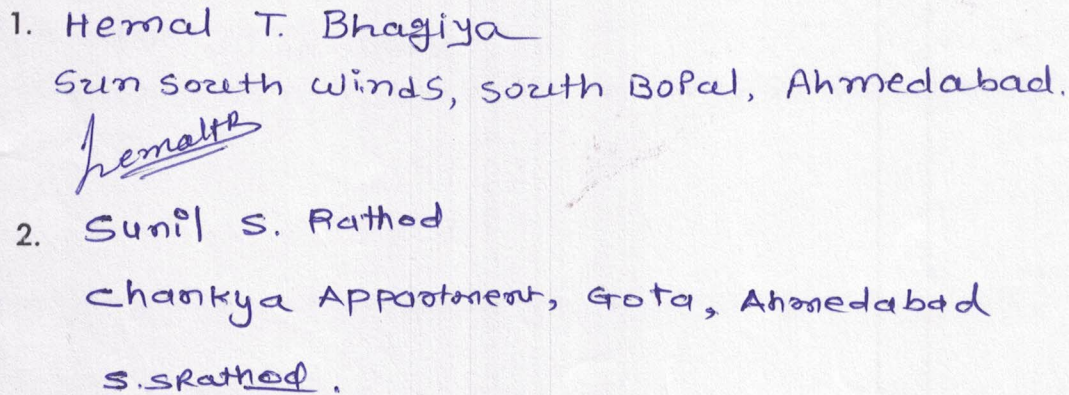 1. Hemal T. Bhagiya
Sun South Winds, South Bopal, Ahmedabad.
HemaltB
2. Sunil S. Rathod
Chankya Appartment, Gota, Ahmedabad
S.SRathod.